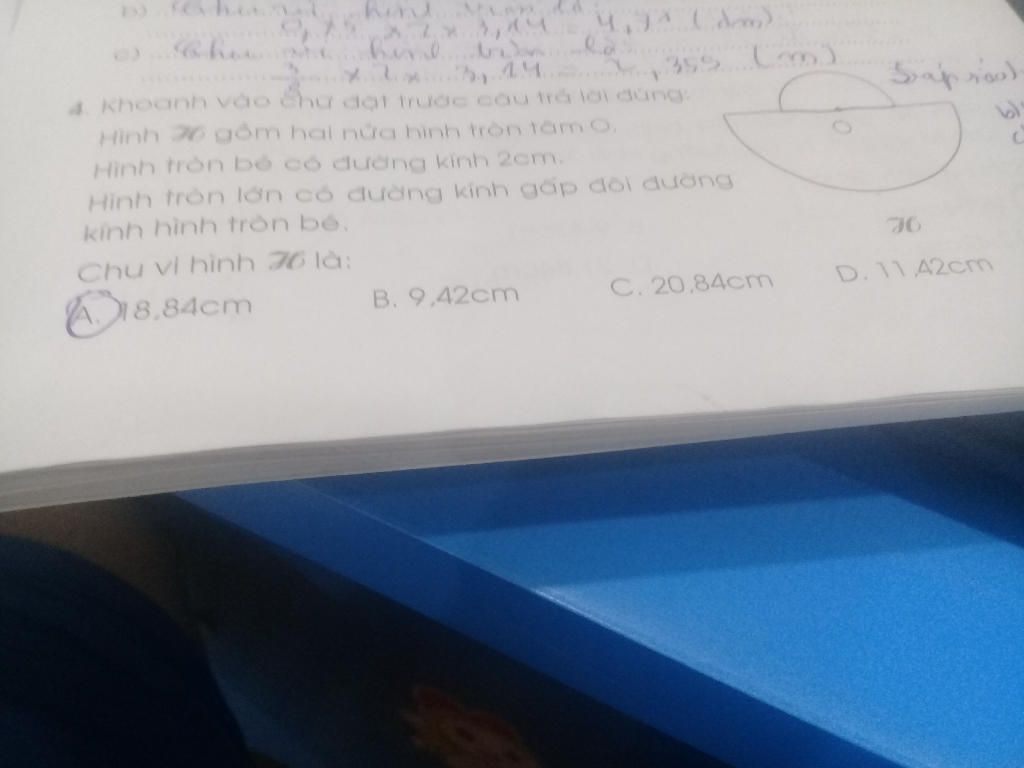 b) Chu vi hình tròn là:
0,75 x 2 x 3,14 = 4,71 (dm)
c) Chu vi hình tròn là:
x 2 x 3,14 = 2,355 (m)
4. Khoanh vào chữ đặt trước câu trả lời đúng:
Hình H gồm hai nửa hình tròn tâm O.
Hình tròn bé có đường kính 2cm.
Hình tròn lớn có đường kính gấp đôi đường
kính hình tròn bé.
O
H
Chu vi hình H là:
A. 18,84cm B. 9,42cm C. 20,84cm D. 11,42cm